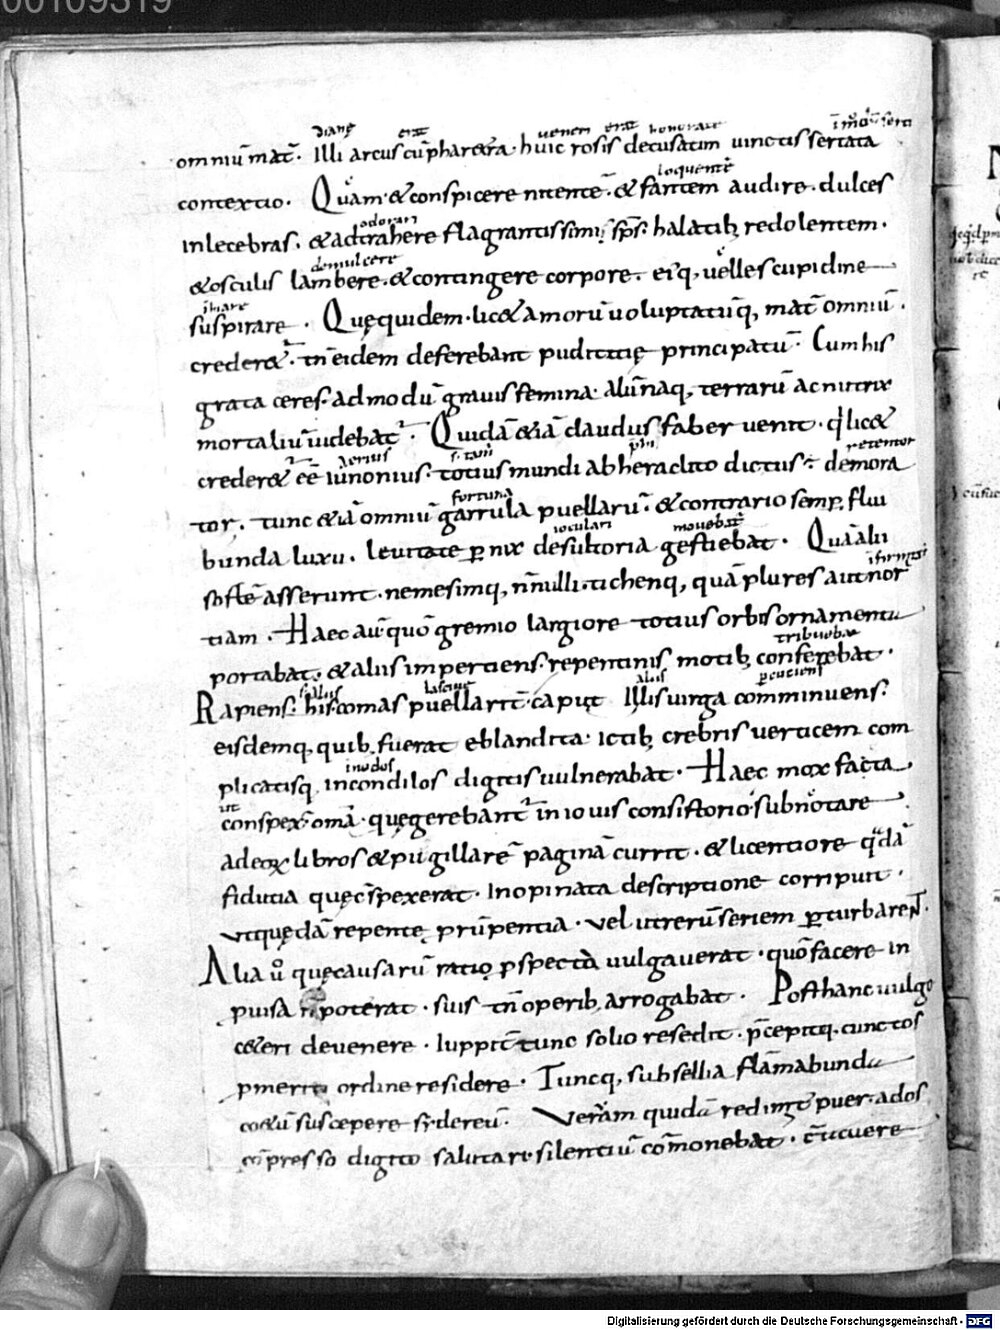 00109319
diane erat uenerı erat honorate
omniū mat̄. Illi arcus cū pharetra. huic rosis decusatim uinctis sertata
loquentē
contextio. Quam & conspicere nitentē. & fantem audire. dulces
odorari
inlecebras. & adtrahere flagrantissimi sp̄s. halatib; redolentem.
demulcere
& osculis lambere. & contingere corpore. eiq; uelles cupidine
inhiare
suspirare. Quę quidem. lic& amorū uoluptatūq; mat̄ omniū.
creder&̄. tn̄ eidem deferebant pudicitię principatū. Cum his
grata ceres. admodū grauis femina. alūnaq; terrarū ac nutrix
mortaliū uidebat̄. Quidā &iā claudus faber uenit. q lic&
aerius s. tam̄ retentor
creder&̄ ēē iunonius. totius mundi ab heraclito dictus ē demora
fortuna
tor. tunc &iā omniū garrula puellarū. & contrario semp̄ flui
ioculari mouebat̄
bunda luxu. leuitate pnix desultoria gestiebat. Quā alii
sortē asserunt. nemesimq; nn̄ulli. tichenq; quā plures aut nor
tiam. Haec aū quō gremio largiore totius orbis ornamenta
tribuebat
portabat. & aliis impertiens. repentinis motib; conferebat.
aliis percutiens
Rapiens. his comas puellarit̄. caput Illis uirga comminuens.
eisdemq; quib; fuerat eblandita. ictib; crebris uerticem com
inodos
plicatisq; incondilos digitis uulnerabat. Haec mox facta
ut
conspex̄. om̄a. quę gerebant̄ in iouis consistorio. subnotare
adeox libros & pugillarē paginā currit. & licentiore qdā
fiducia quę c̄spexerat. Inopinata descriptione corripuit.
Vt quędā repente prūpentia. vel iteterū seriem pturbarent.
Alia ū quę causarū ratio pspecta uulgauerat. quō facere in
puisa n̄ poterat. suis tn̄ operib; arrogabat. Posthanc uulgo
c&eri deuenere. Iuppit̄ tunc solio resedit. p̄cepitq; cunctos
pmeritꝫ ordine residere. Tuncq; subsellia flām̄abunda
co&ū suscepere sydereū. Verām quidā redimit̄ puer. ados
cōpresso digito salutari. silentiū com̄onebat. c̄ticuere
Digitalisierung gefördert durch die Deutsche Forschungsgemeinschaft - DFG